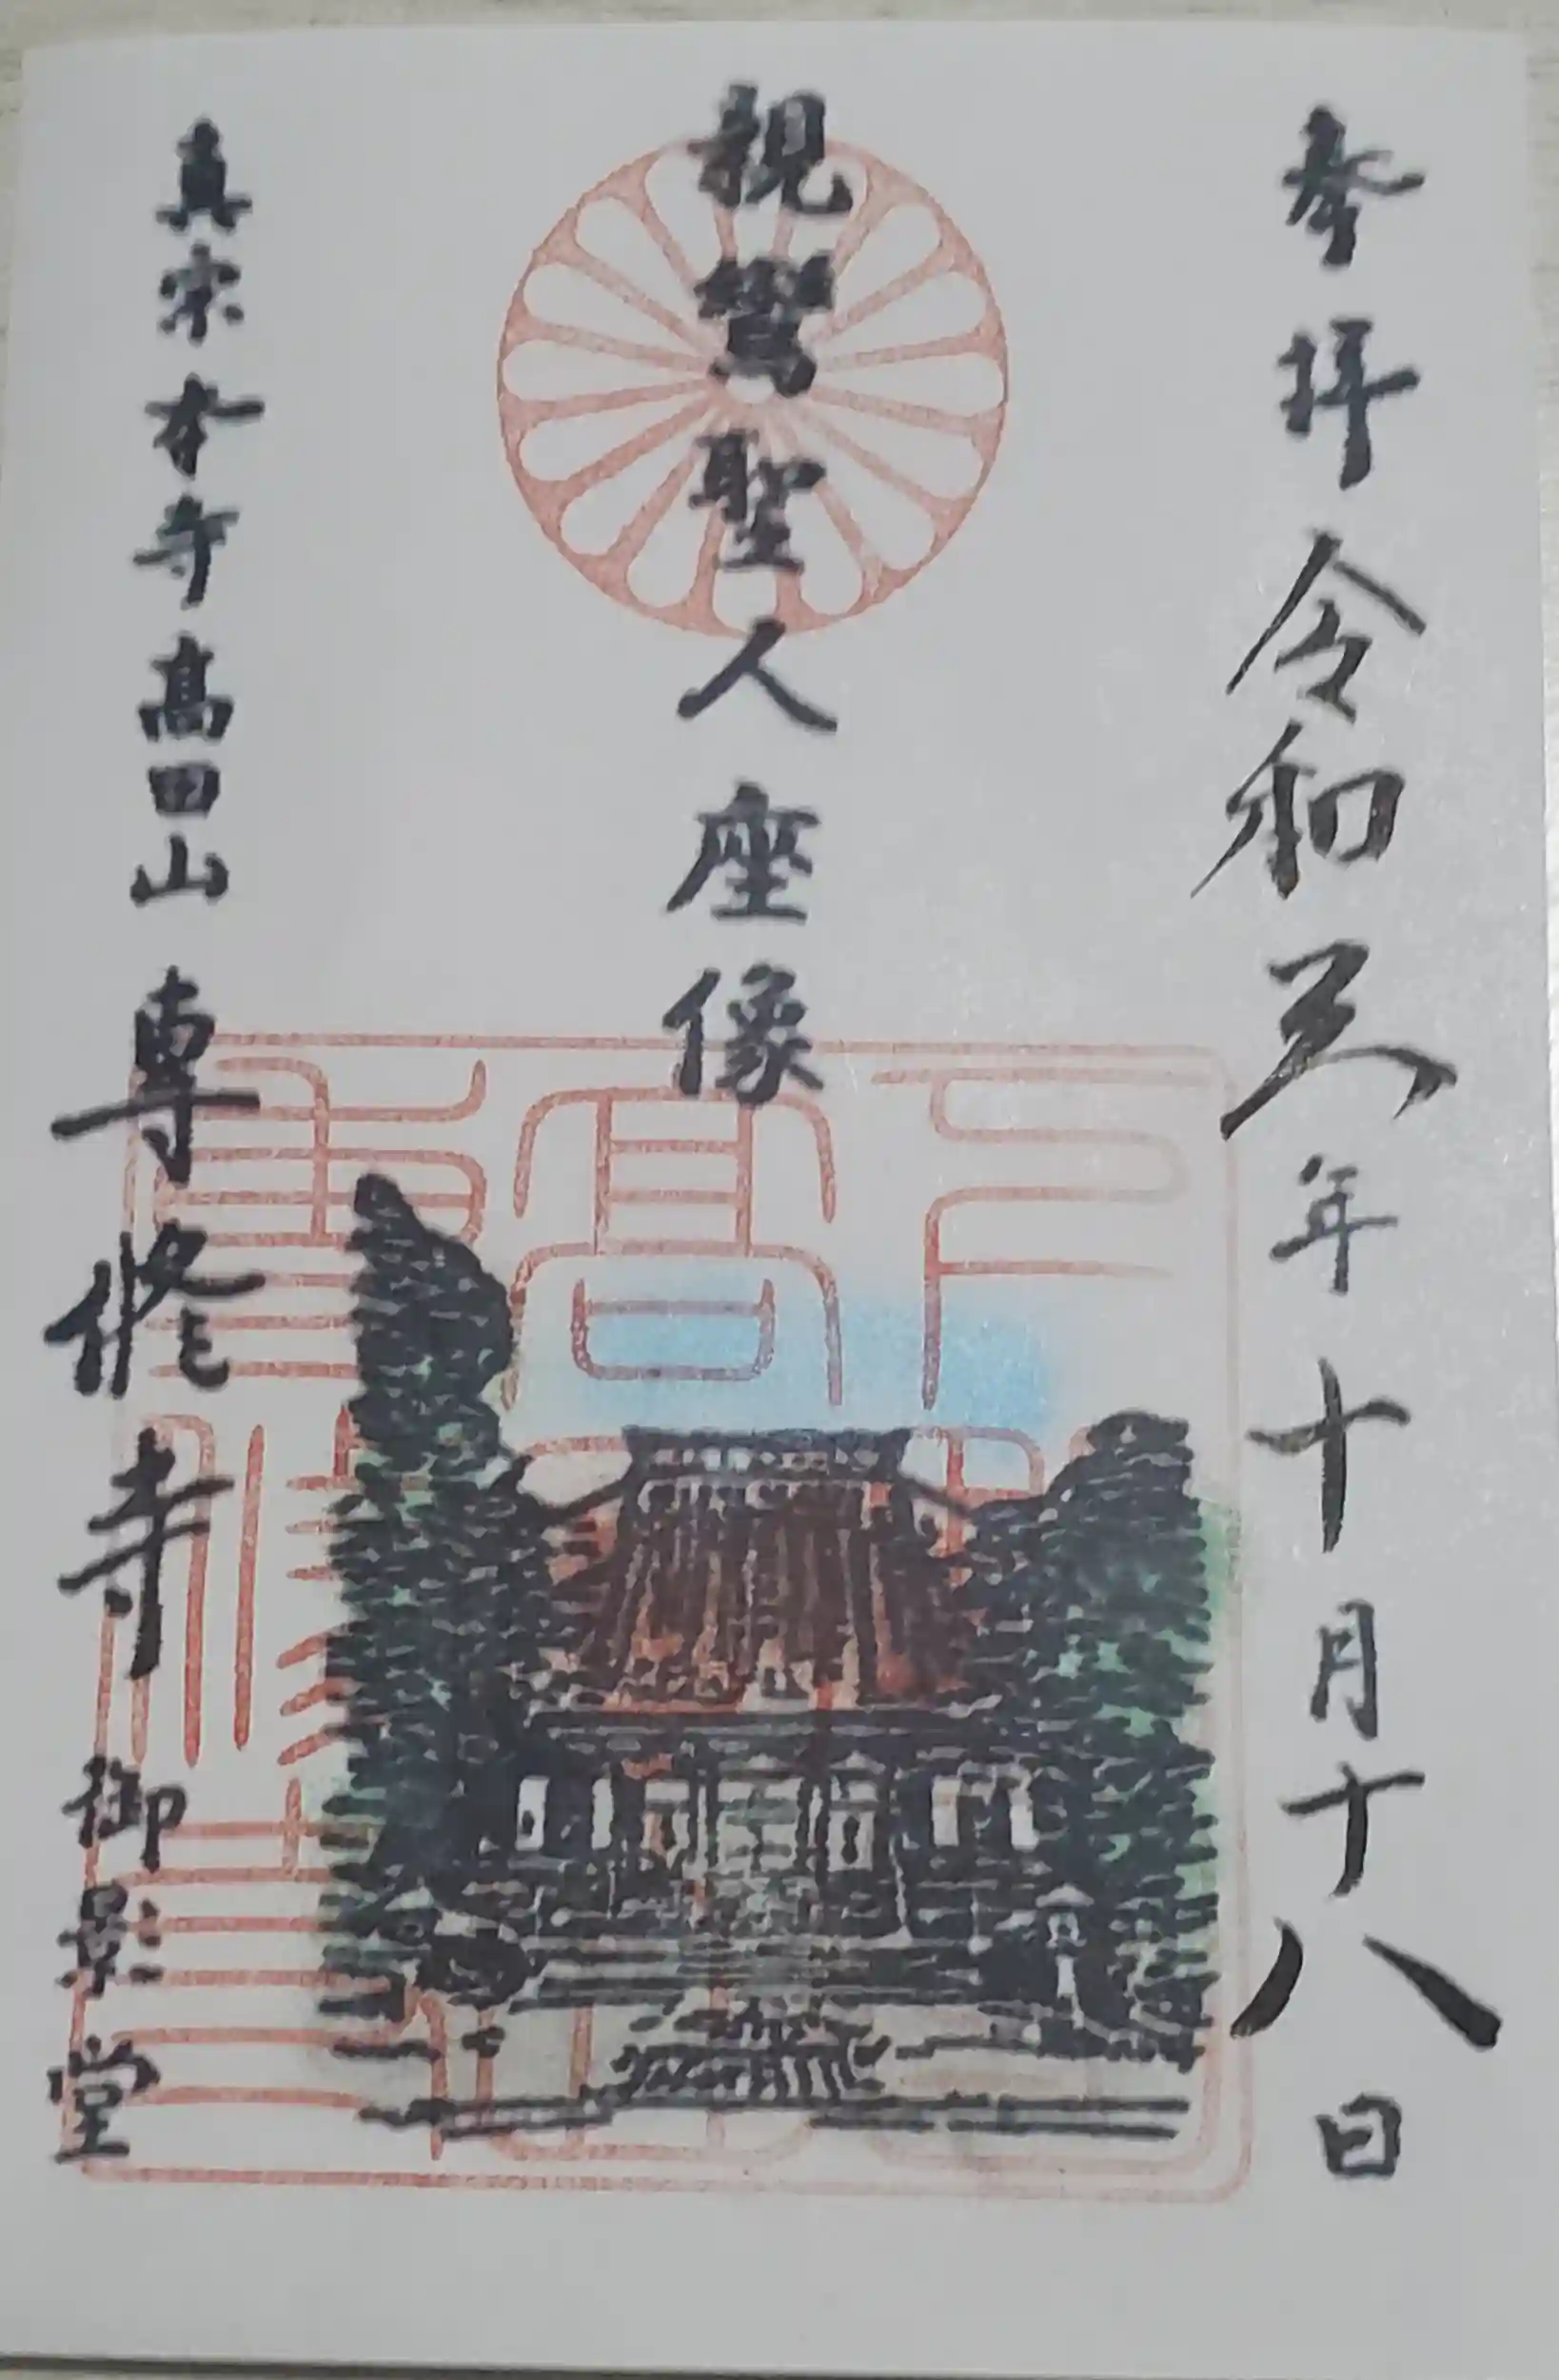 奉拝 令和 年十月十八日
親鸞聖人座像
真宗本寺高田山 専修寺 御影堂